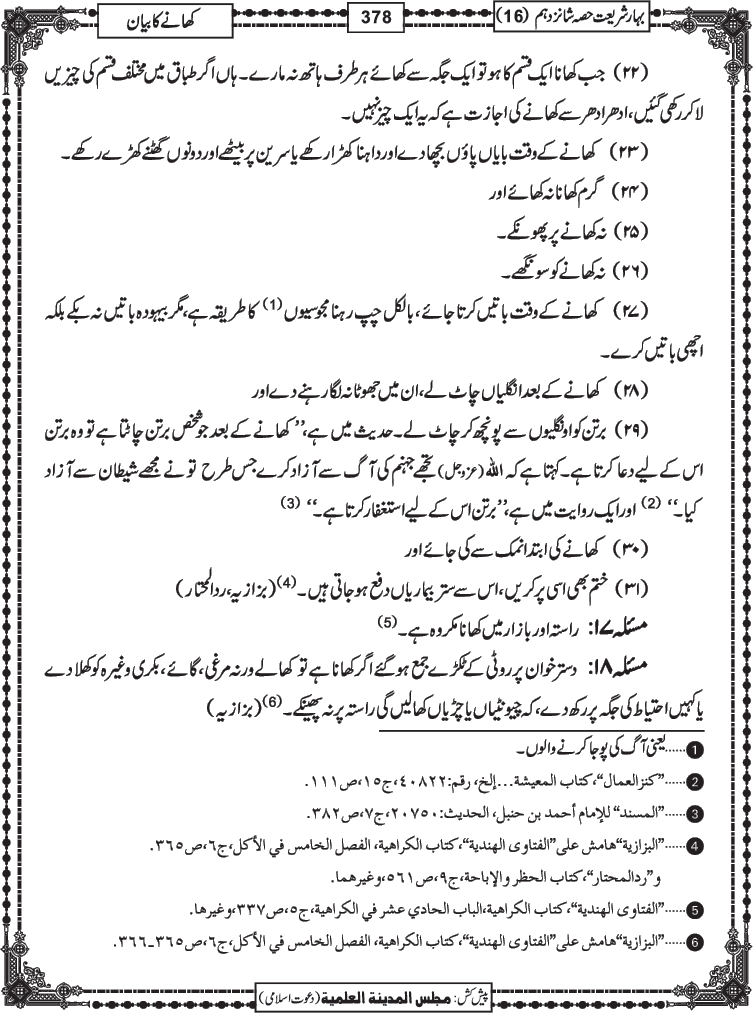 بہارِ شریعت حصہ شانزدہم (16)
378
کھانے کا بیان
(۲۲) جب کھانا ایک قسم کا ہو تو ایک جگہ سے کھائے ہر طرف ہاتھ نہ مارے۔ ہاں اگر طباق میں مختلف قسم کی چیزیں
لا کر رکھی گئیں، ادھر ادھر سے کھانے کی اجازت ہے کہ یہ ایک چیز نہیں۔
(۲۳) کھانے کے وقت بایاں پاؤں بچھا دے اور داہنا کھڑا رکھے یا سرین پر بیٹھے اور دونوں گھٹنے کھڑے رکھے۔
(۲۴) گرم کھانا نہ کھائے اور
(۲۵) نہ کھانے پر پھونکے۔
(۲۶) نہ کھانے کو سونگھے۔
(۲۷) کھانے کے وقت باتیں کرتا جائے، بالکل چپ رہنا مجوسیوں (1) کا طریقہ ہے، مگر بیہودہ باتیں نہ بکے بلکہ
اچھی باتیں کرے۔
(۲۸) کھانے کے بعد انگلیاں چاٹ لے، ان میں جھوٹا نہ لگا رہنے دے اور
(۲۹) برتن کو اونگلیوں سے پونچھ کر چاٹ لے۔ حدیث میں ہے، ’’کھانے کے بعد جو شخص برتن چاٹتا ہے تو وہ برتن
اس کے لیے دعا کرتا ہے۔ کہتا ہے کہ اللہ (عزوجل) تجھے جہنم کی آگ سے آزاد کرے جس طرح تو نے مجھے شیطان سے آزاد
کیا۔‘‘ (2) اور ایک روایت میں ہے، ’’برتن اس کے لیے استغفار کرتا ہے۔‘‘ (3)
(۳۰) کھانے کی ابتدا نمک سے کی جائے اور
(۳۱) ختم بھی اسی پر کریں، اس سے ستر بیماریاں دفع ہو جاتی ہیں۔ (4) (بزازیہ، ردالمحتار)
مسئلہ ۱۷: راستہ اور بازار میں کھانا مکروہ ہے۔ (5)
مسئلہ ۱۸: دسترخوان پر روٹی کے ٹکڑے جمع ہو گئے اگر کھانا ہے تو کھالے ورنہ مرغی، گائے، بکری وغیرہ کو کھلا دے
یا کہیں احتیاط کی جگہ پر رکھ دے، کہ چیونٹیاں یا چڑیاں کھالیں گی راستہ پر نہ پھینکے۔ (6) (بزازیہ)
1 ......یعنی آگ کی پوجا کرنے والوں۔
2 ......’’کنز العمال‘‘، کتاب المعیشة...إلخ، رقم:٤٠٨٢٢، ج١٥، ص١١١.
3 ......’’المسند‘‘ للإمام أحمد بن حنبل، الحدیث:٢٠٧٥٠، ج٧، ص٣٨٢.
4 ......’’البزازیة‘‘ ھامش علی ’’الفتاوی الھندیة‘‘، کتاب الکراھیة، الفصل الخامس في الأکل، ج٦، ص٣٦٥.
و ’’ردالمحتار‘‘، کتاب الحظر والإباحة، ج٩، ص٥٦١، وغیرهما.
5 ......’’الفتاوی الھندیة‘‘، کتاب الکراھیة، الباب الحادي عشر في الکراھیة، ج٥، ص٣٣٧، وغیرها.
6 ......’’البزازیة‘‘ ھامش علی ’’الفتاوی الھندیة‘‘، کتاب الکراھیة، الفصل الخامس في الأکل، ج٦، ص٣٦٥۔٣٦٦.
پیش کش: مجلس المدینة العلمیة (دعوت اسلامی)